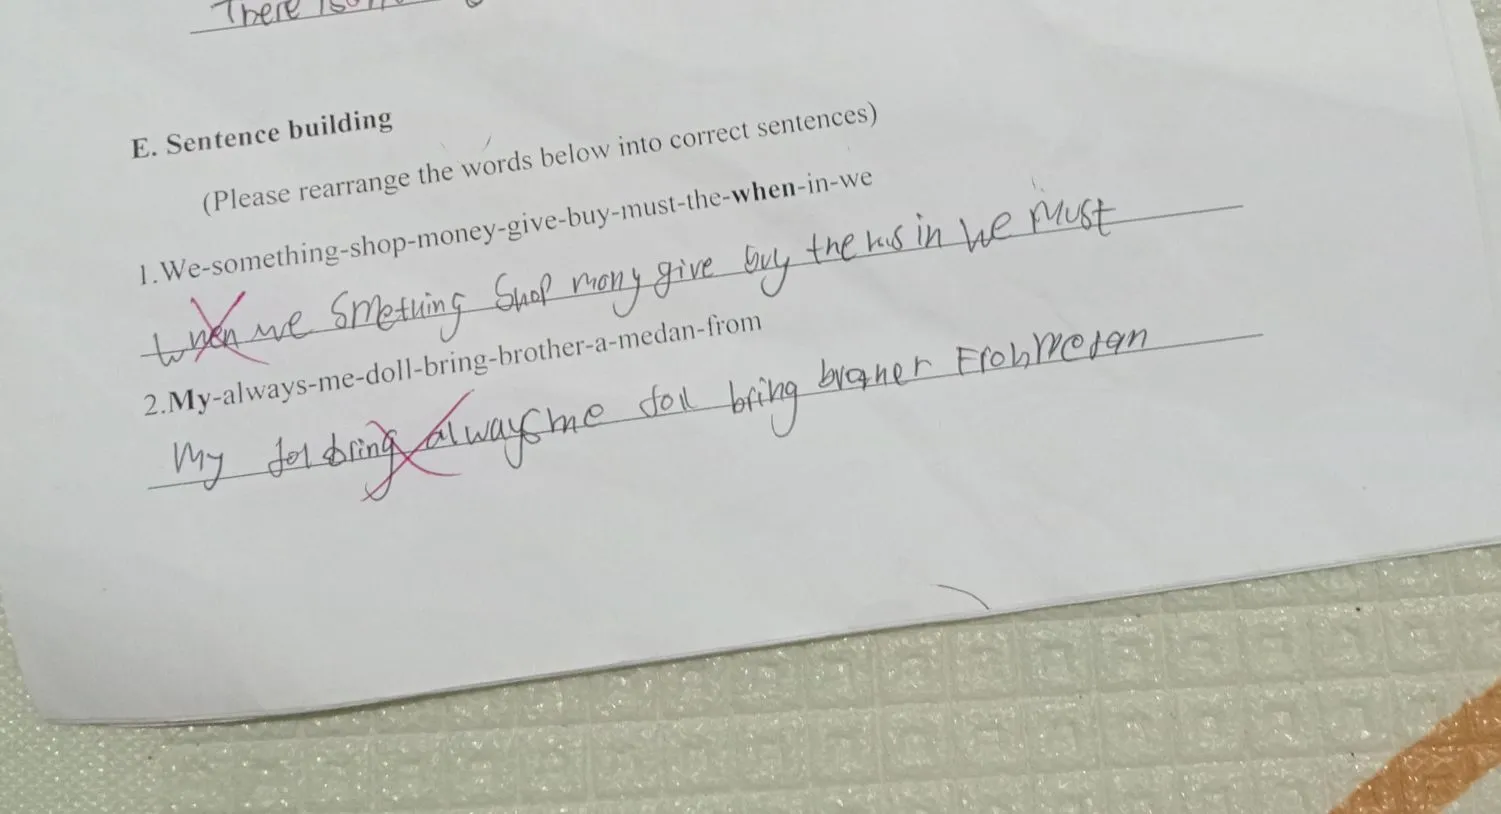 There is
E. Sentence building
(Please rearrange the words below into correct sentences)
1.We-something-shop-money-give-buy-must-the-when-in-we
When we Smething Shop mony give buy the in we Must
2.My-always-me-doll-bring-brother-a-medan-from
My bring always me doll bring From Medan